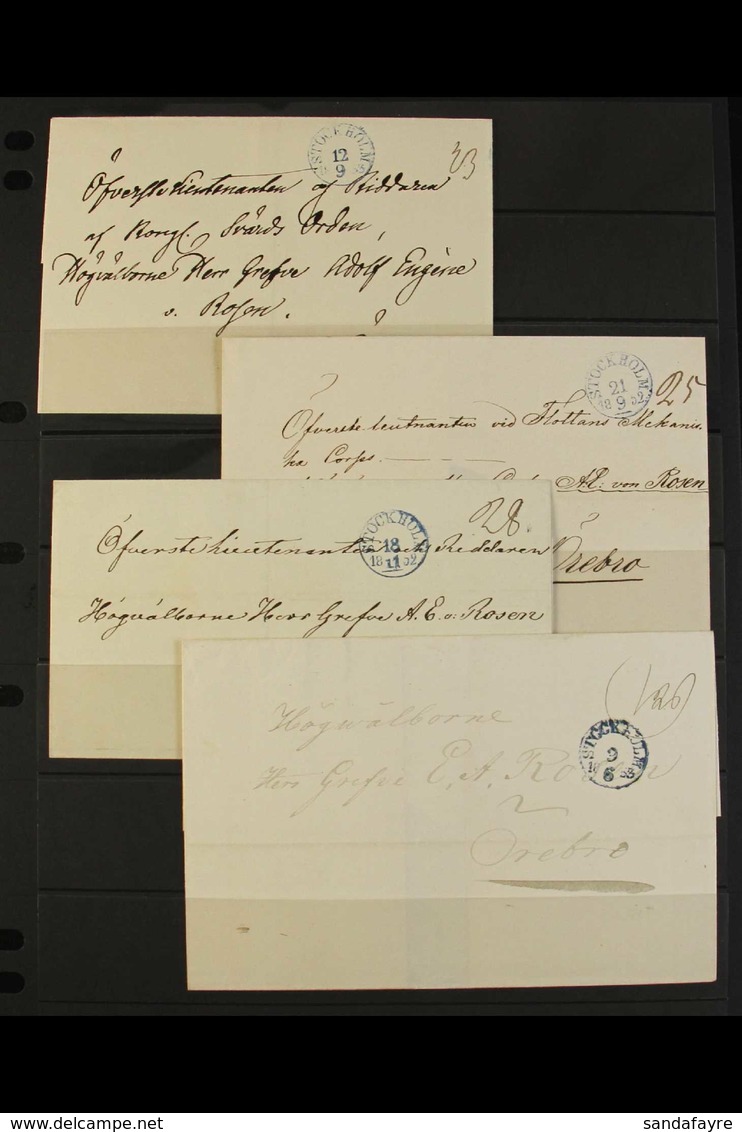 STOCKHOLM
12
9
33
Öfverste Lieutenanten af Riddaren
af Kongl. Svärds Orden,
Högvälborne Herr Grefve Adolf Eugène
v. Rosen.
STOCKHOLM
21
18 9 52
25
Öfverste leutnanten vid Flottans Mekanis-
ka Corps.
A.E: von Rosen
Örebro
STOCKHOLM
18
18 11 52
28.
Öfverste Lieutenanten Riddaren
Högwälborne Herr Grefve A. E. v. Rosen
STOCKHOLM
9
6
Högwälborne
Herr Grefve E. A. Rosen
Örebro
sandafayre